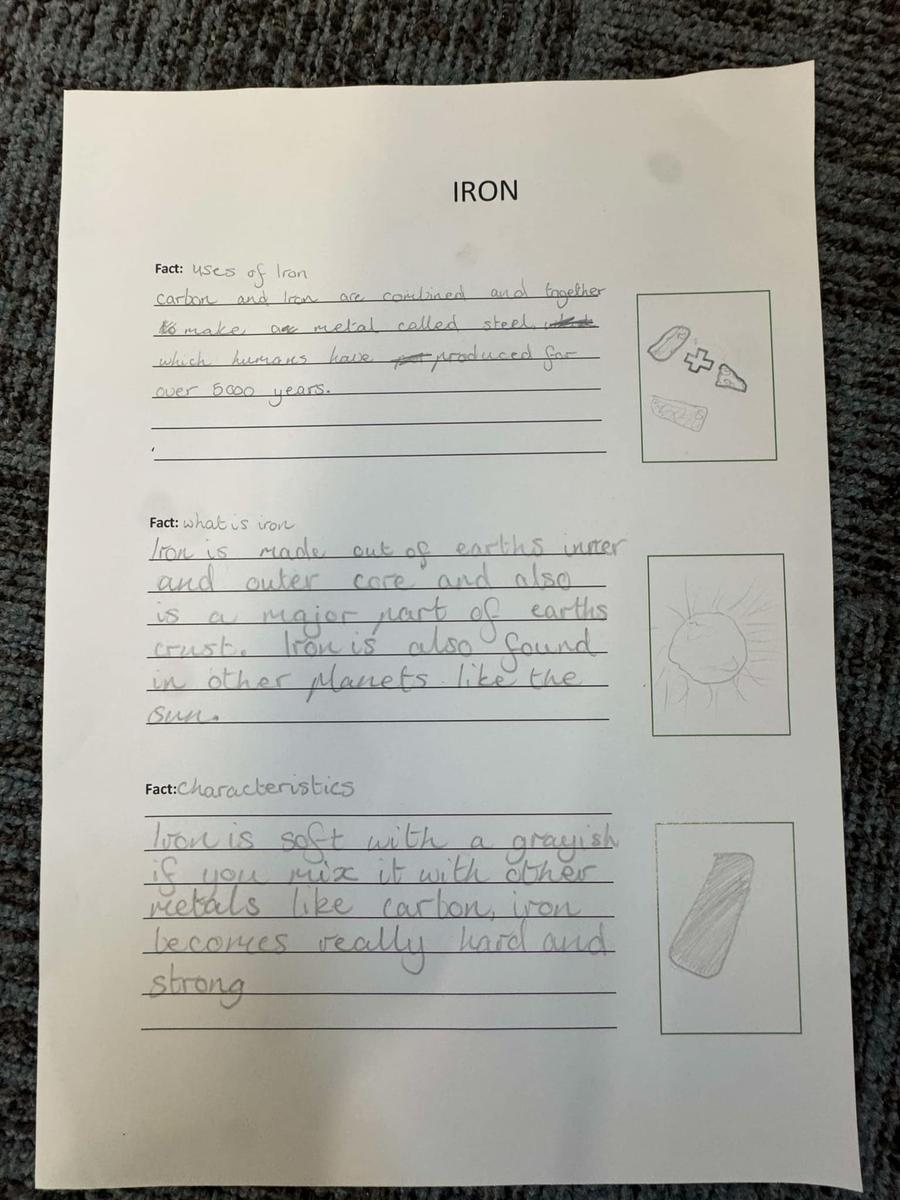 IRON
Fact: uses of Iron
carbon and Iron are combined and together
to make a metal called steel,
which humans have produced for
over 5000 years.
Fact: what is iron
Iron is made out of earths inner
and outer core and also
is a major part of earths
crust. Iron is also found
in other planets like the
sun.
Fact: characteristics
Iron is soft with a grayish
if you mix it with other
metals like carbon, iron
becomes really hard and
strong